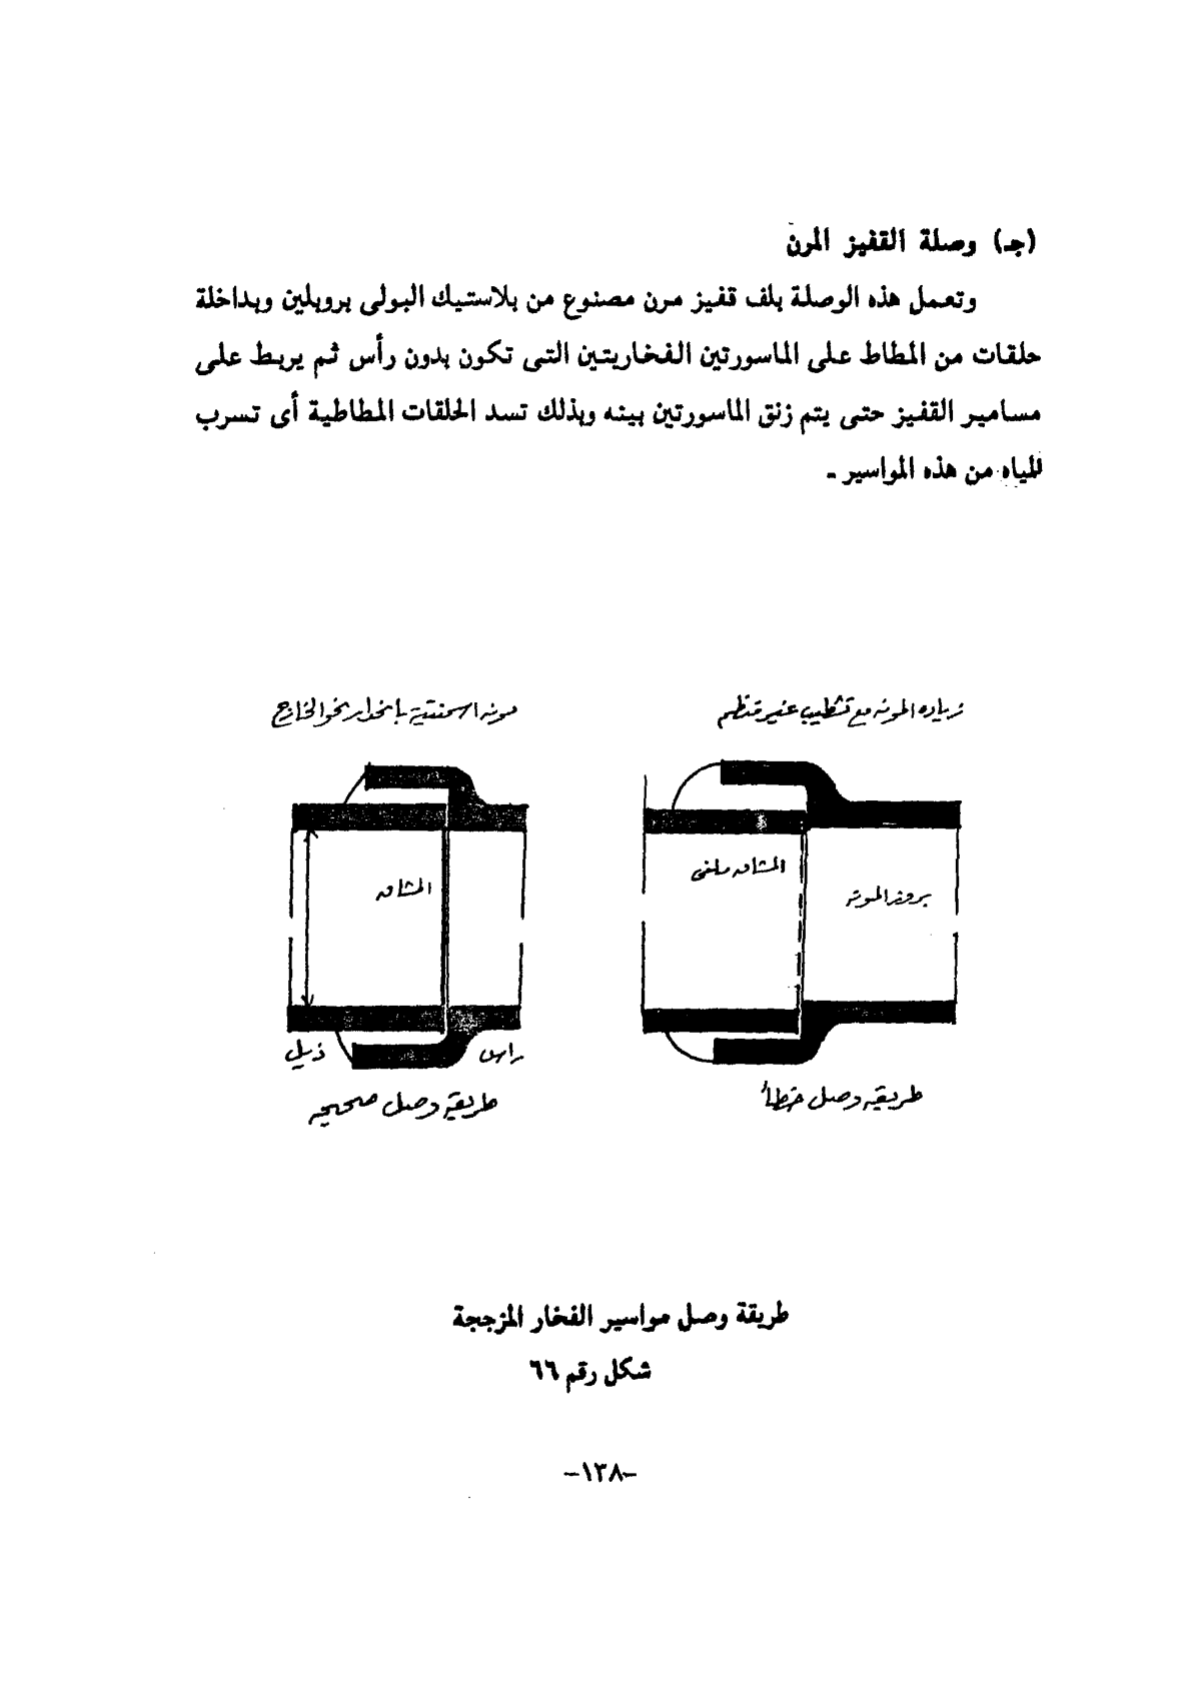 (جـ) وصلة القفيز المرن
وتعمل هذه الوصلة بلف قفيز مرن مصنوع من بلاستيك البولى بروبلين وبداخلة
حلقات من المطاط على الماسورتين الفخاريتين التى تكون بدون رأس ثم يربط على
مسامير القفيز حتى يتم زنق الماسورتين بينه وبذلك تسد الحلقات المطاطية أى تسرب
للمياه من هذه المواسير ـ
زياده المونه مع تشطيب غير منظم
مونه اسمنتية بإنحدار نحو الخارج
المشاق ملغى
بروز المونه
المشاق
راس
ذيل
طريقه وصل خطأ
طريقه وصل صحيحه
طريقة وصل مواسير الفخار المزججة
شكل رقم ٦٦
-١٣٨-